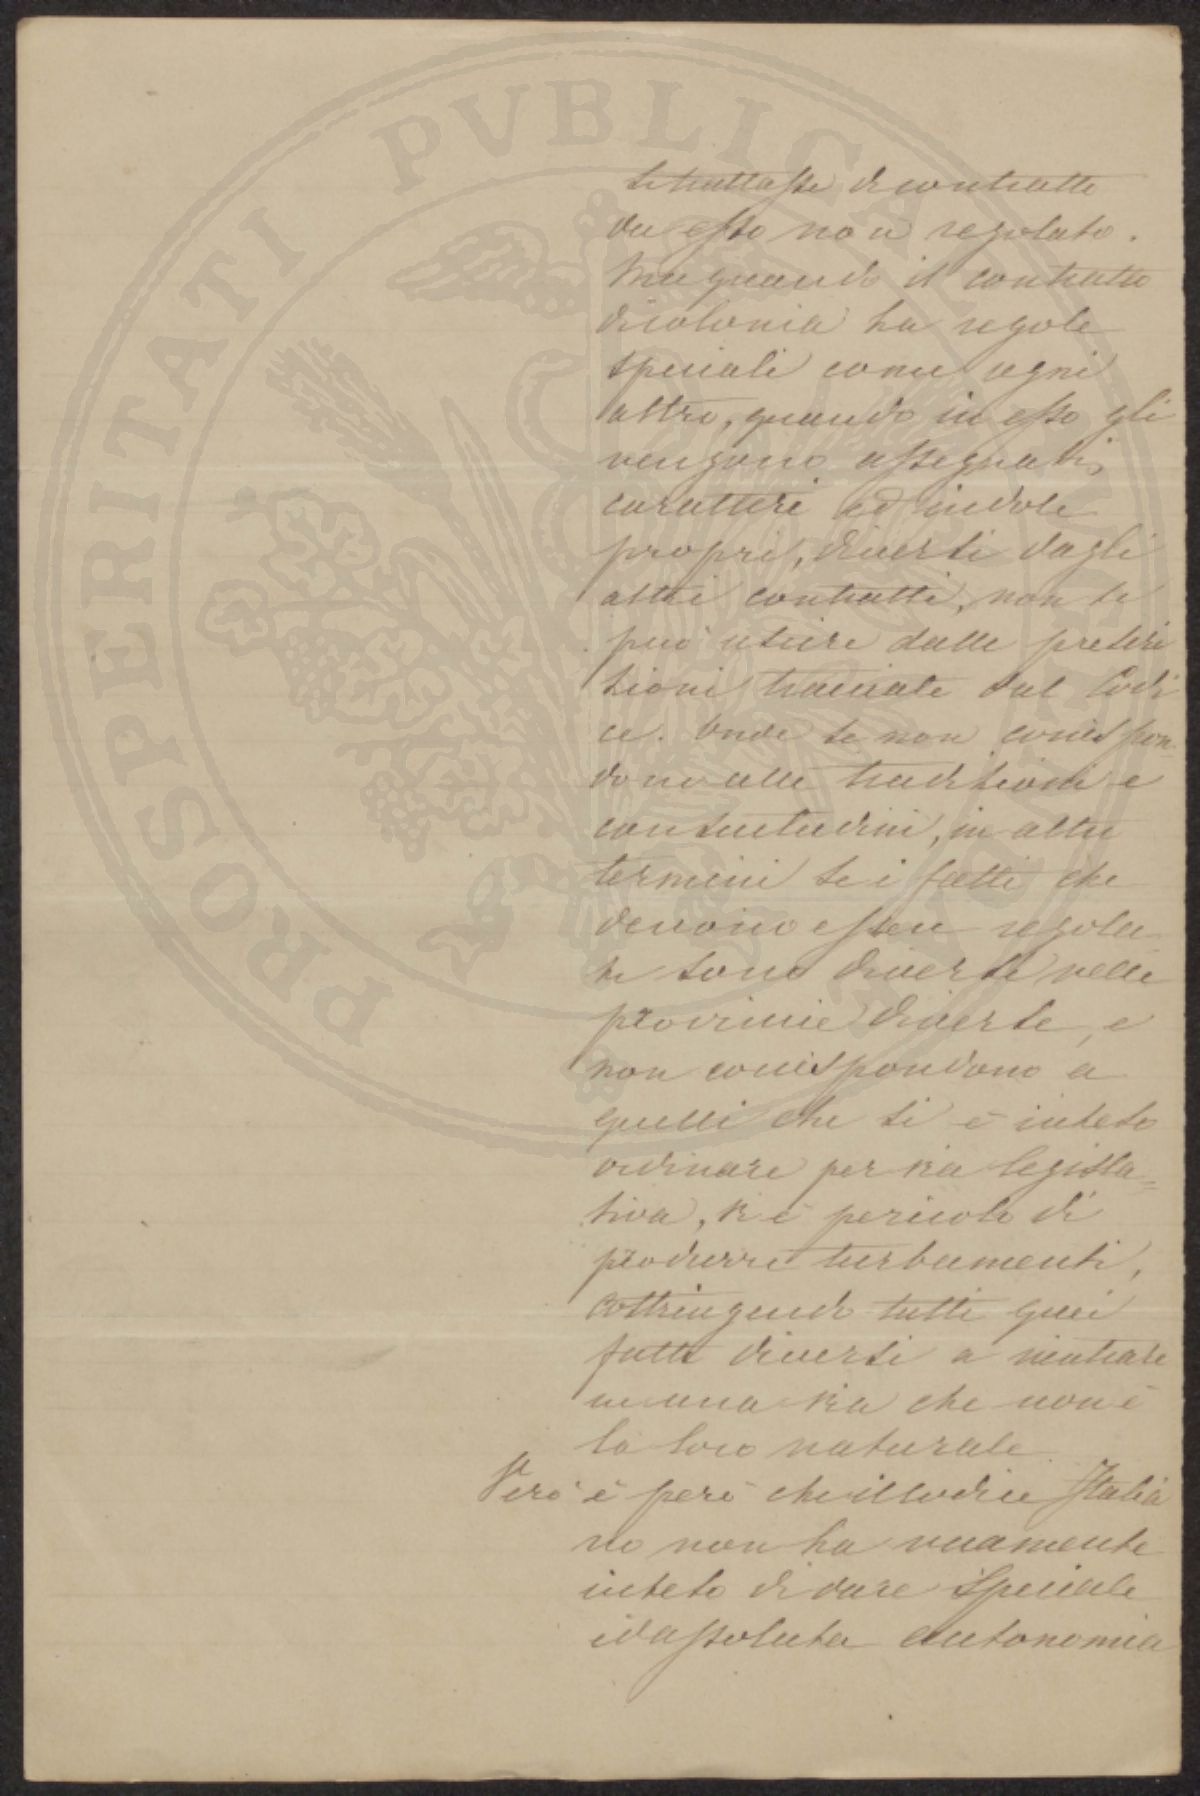 PROSPERITATI PVBLICAE
si trattasse di contratto
da esso non regolato.
Ma quando il contratto
di colonia ha regole
speciali come ogni
altro, quando in esso gli
vengono assegnati
caratteri ed indole
proprî, diversi dagli
altri contratti, non si
può uscire dalle prescri
zioni tracciate dal Codi
ce. Onde se non corrispon-
dono alle tradizioni e
consuetudini, in altri
termini se i fatti che
devono essere regola
ti sono diversi nelle
provincie diverse, e
non corrispondono a
quelli che si è inteso
ordinare per via legisla=
tiva, vi è pericolo di
produrre turbamenti,
costringendo tutti quei
fatti diversi a rientrare
in una via che non è
la loro naturale.
Vero è però che il Codice Italia
no non ha veramente
inteso di dare speciale
ed assoluta autonomia